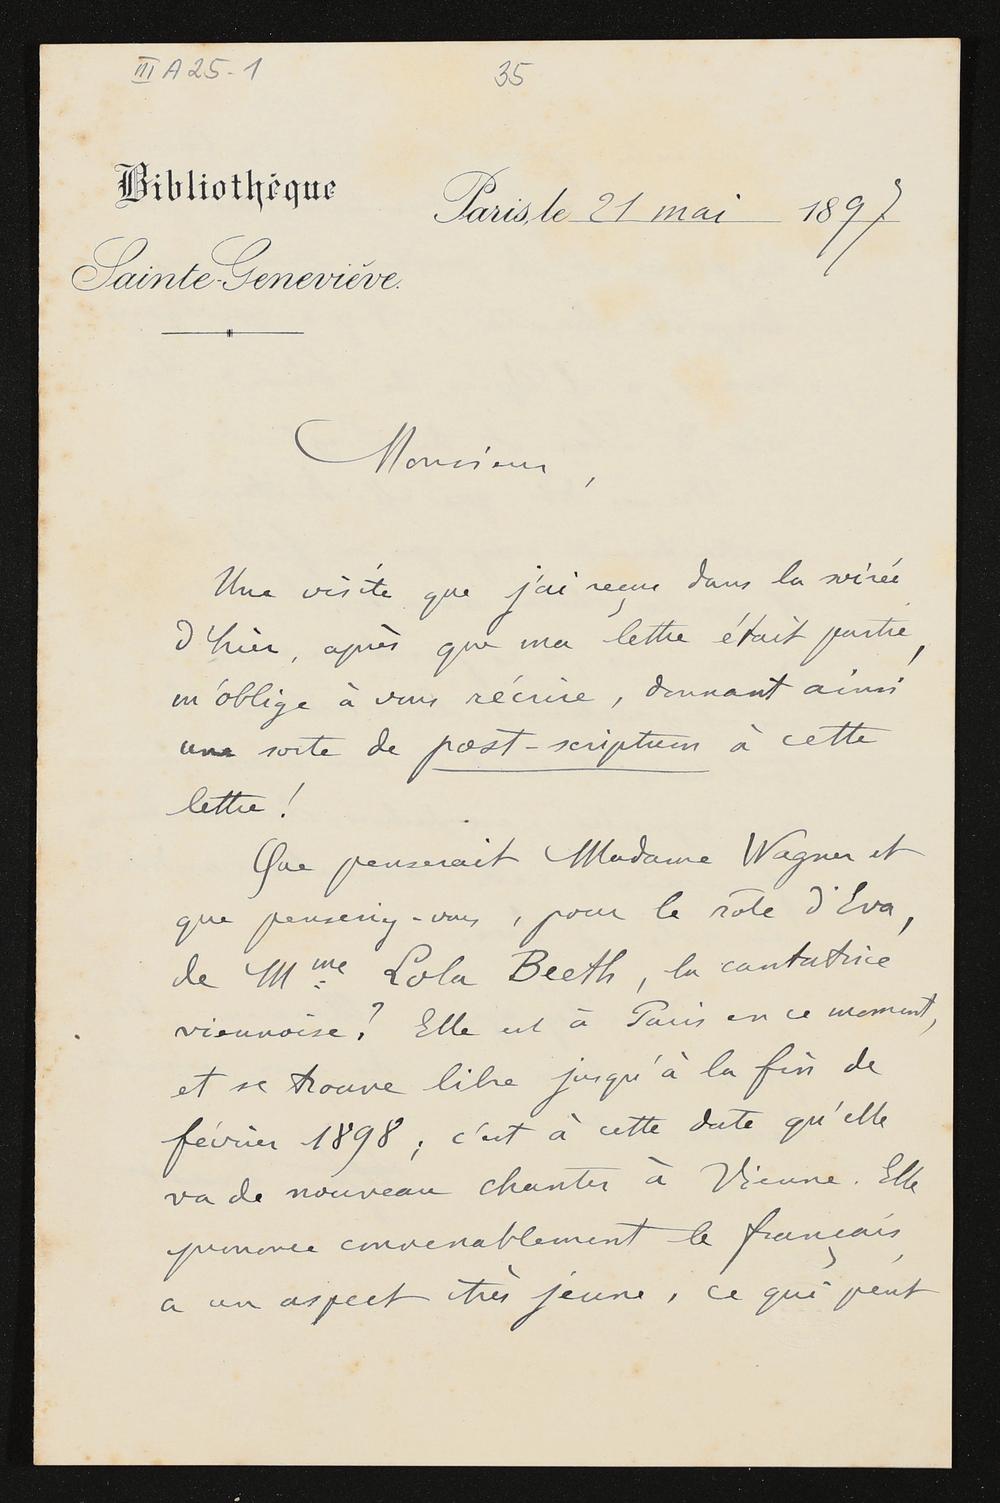 III A 25-1
35
Bibliothèque
Sainte-Geneviève.
Paris, le 21 mai 1897
Monsieur,
Une visite que j'ai reçue dans la soirée
d'hier, après que ma lettre était partie,
m'oblige à vous récrire, donnant ainsi
une sorte de post-scriptum à cette
lettre !
Que penserait Madame Wagner et
que penseriez-vous, pour le rôle d'Eva,
de Mme Lola Beeth, la cantatrice
viennoise ? Elle est à Paris en ce moment,
et se trouve libre jusqu'à la fin de
février 1898 ; c'est à cette date qu'elle
va de nouveau chanter à Vienne. Elle
prononce convenablement le français,
a un aspect très jeune, ce qui peut